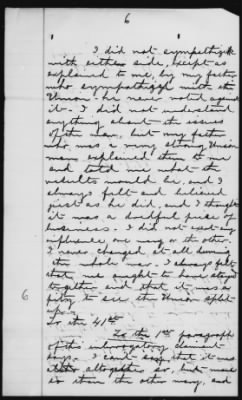 6
I did not sympathize
with either side, except as
explained to me, by my father
who sympathized with the
Union. he never voted against
it. I did not understand
anything about the issues
of the war, but my father
who was a very strong Union
man explained them to me
and told me what the
results would be, and I
always felt and believed
just as he did, and I thought
it was a dreadful piece of
business. I did not exert any
influence one way or the other.
I never changed at all during
the whole war. I always felt
that we ought to have stayed
together and that it was a
pity to see the Union split
up.
6
To the 41st
To the 1st paragraph
of this interrogatory claimant
says. I can't say that it was
altogether so, but more
so than the other way, and